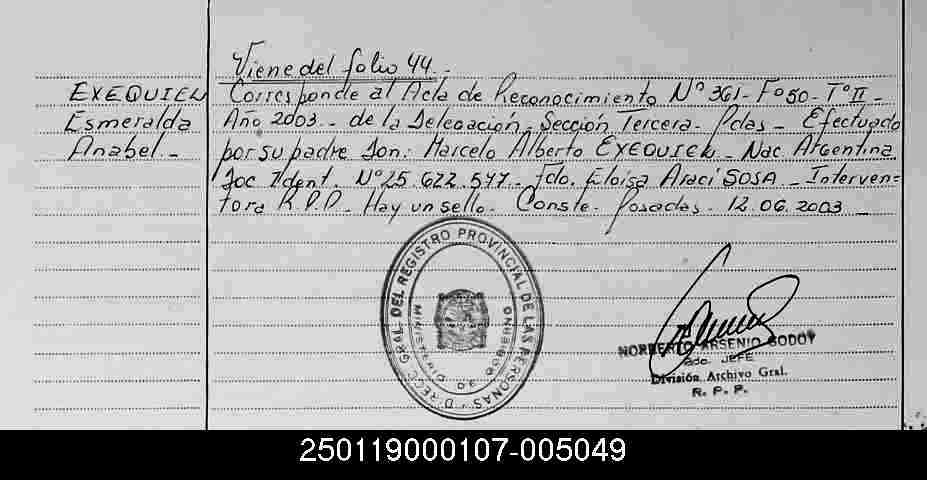 Viene del folio 44.-
EXEQUIEL
Esmeralda
Anabel.-
Corresponde al Acta de Reconocimiento Nº 361- Fº50- TºII-
Año 2003.- de la Delegación- Sección Tercera- Pdas- Efectuado
por su padre Don: Marcelo Alberto EXEQUIEL- Nac. Argentina
Doc Ident. Nº25.622.577- Fdo. Eloisa Araci SOSA- Interven=
tora R.P.P- Hay un sello- Conste- Posadas- 12.06.2003
DIRECC. GRAL. DEL REGISTRO PROVINCIAL DE LAS PERSONAS
MINISTERIO DE GOBIERNO
NORBERTO ARSENIO GODOY
2do. JEFE
División Archivo Gral.
R. P. P.
250119000107-005049